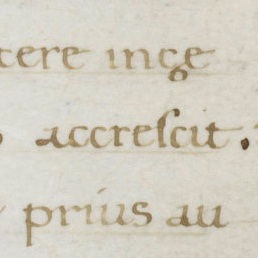 cere inge
accrescit.
prius au